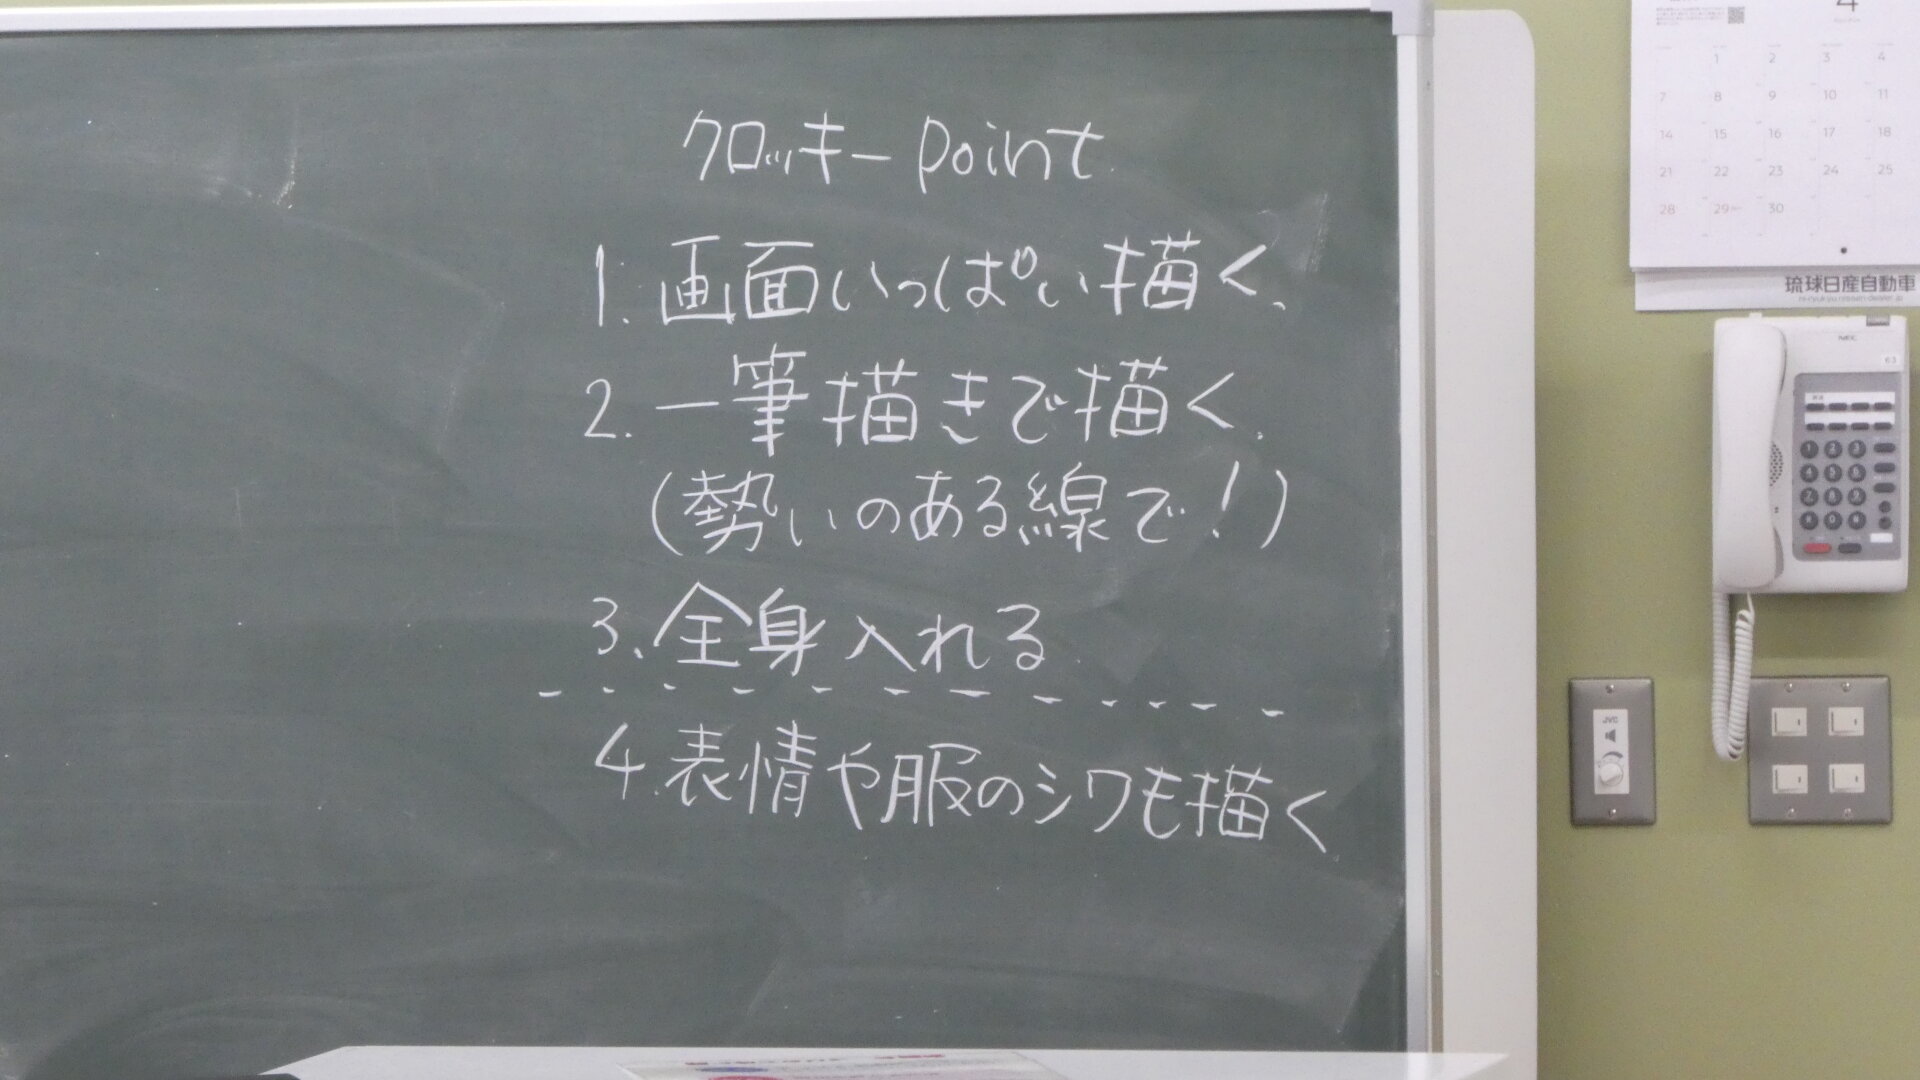 クロッキー point
1. 画面いっぱい描く、
2. 一筆描きで描く.
(勢いのある線で!)
3、全身入れる
4.表情や服のシワも描く
4
1 2 3 4
7 8 9 10 11
14 15 16 17 18
21 22 23 24 25
28 29 30
琉球日産自動車
NEC
63
JVC